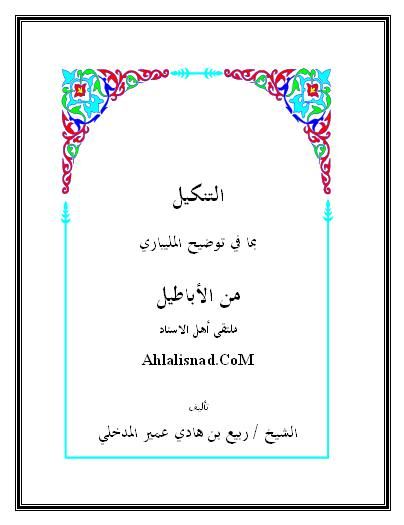 التنكيل
بما في توضيح المليباري
من الأباطيل
ملتقى أهل الاسناد
Ahlalisnad.CoM
تأليف
الشيخ / ربيع بن هادي عمير المدخلي